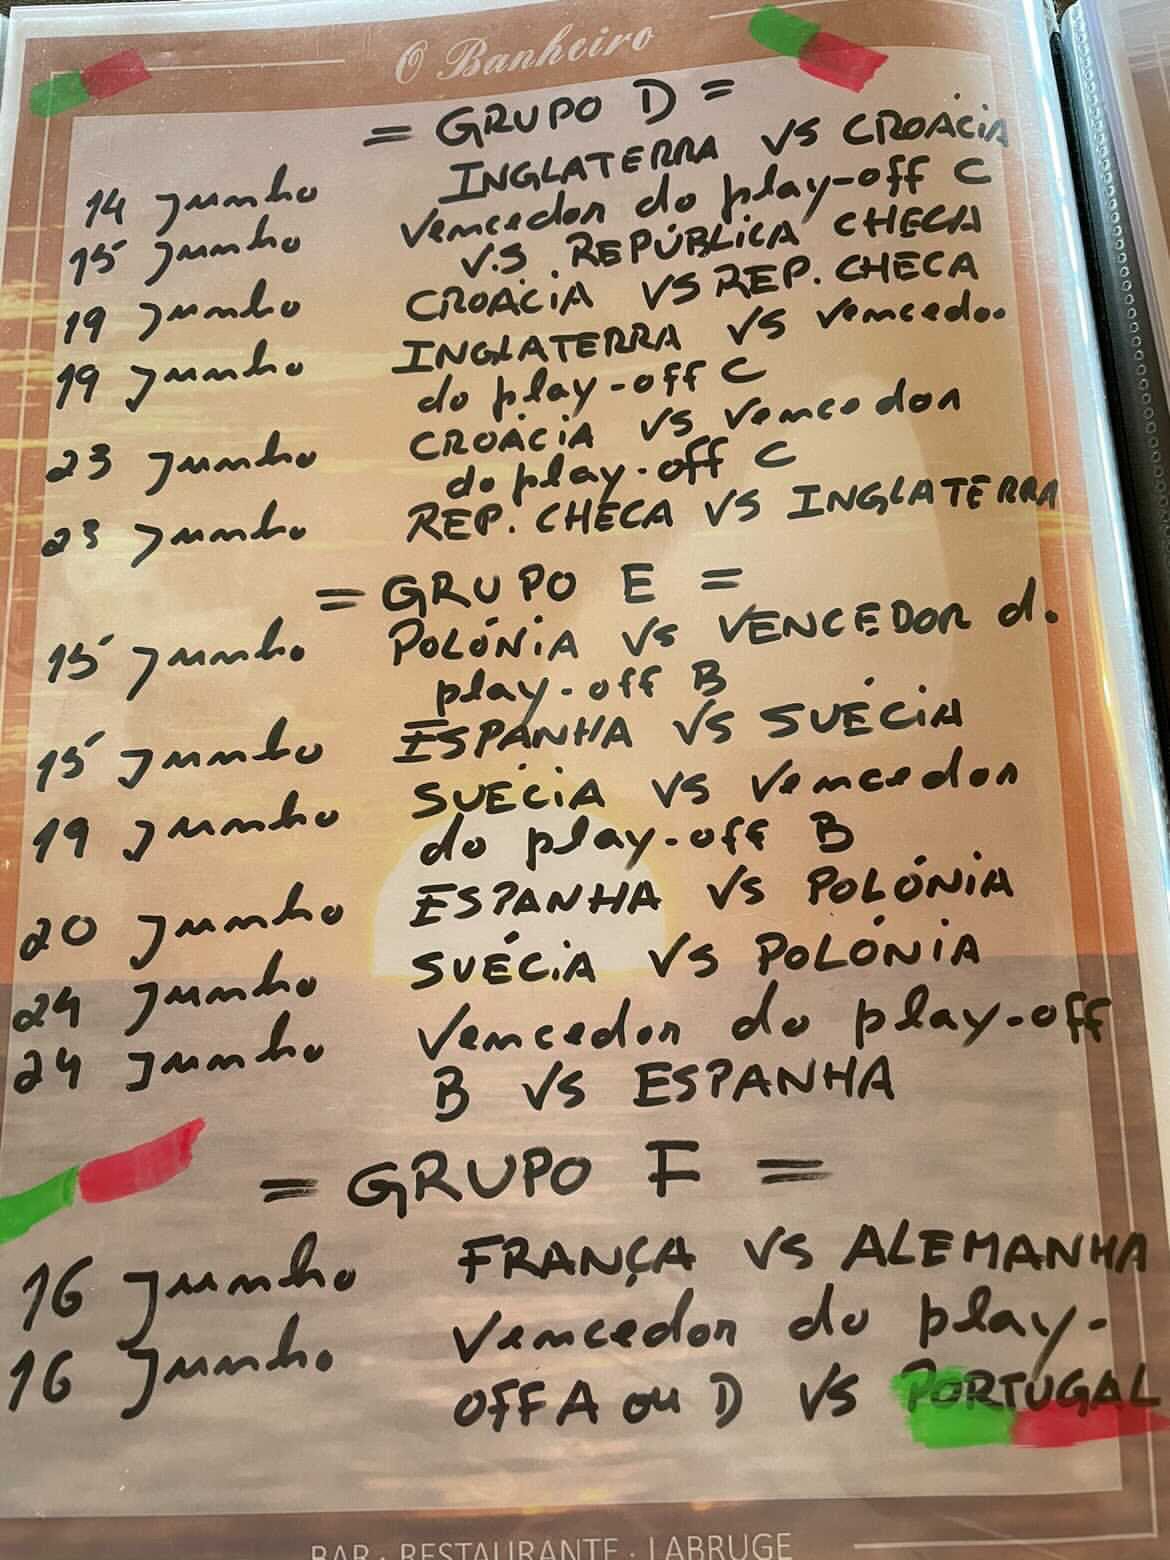 O Banheiro
= GRUPO D =
14 Junho INGLATERRA VS CROÁCIA
15 Junho Vencedor do play-off C
V.S. REPÚBLICA CHECA
19 Junho CROÁCIA VS REP. CHECA
19 Junho INGLATERRA VS Vencedo.
do play-off C
23 Junho CROÁCIA VS Vencedor
do play-off C
23 Junho REP. CHECA VS INGLATERRA
= GRUPO E =
15 Junho POLÓNIA VS VENCEDOR d.
play-off B
15 Junho ESPANHA VS SUÉCIA
19 Junho SUÉCIA VS Vencedor
do play-off B
20 Junho ESPANHA VS POLÓNIA
24 Junho SUÉCIA VS POLÓNIA
24 Junho Vencedor do play-off
B VS ESPANHA
= GRUPO F =
16 Junho FRANÇA VS ALEMANHA
16 Junho Vencedor do play-
off A ou D VS PORTUGAL
BAR · RESTAURANTE · LABRUGE